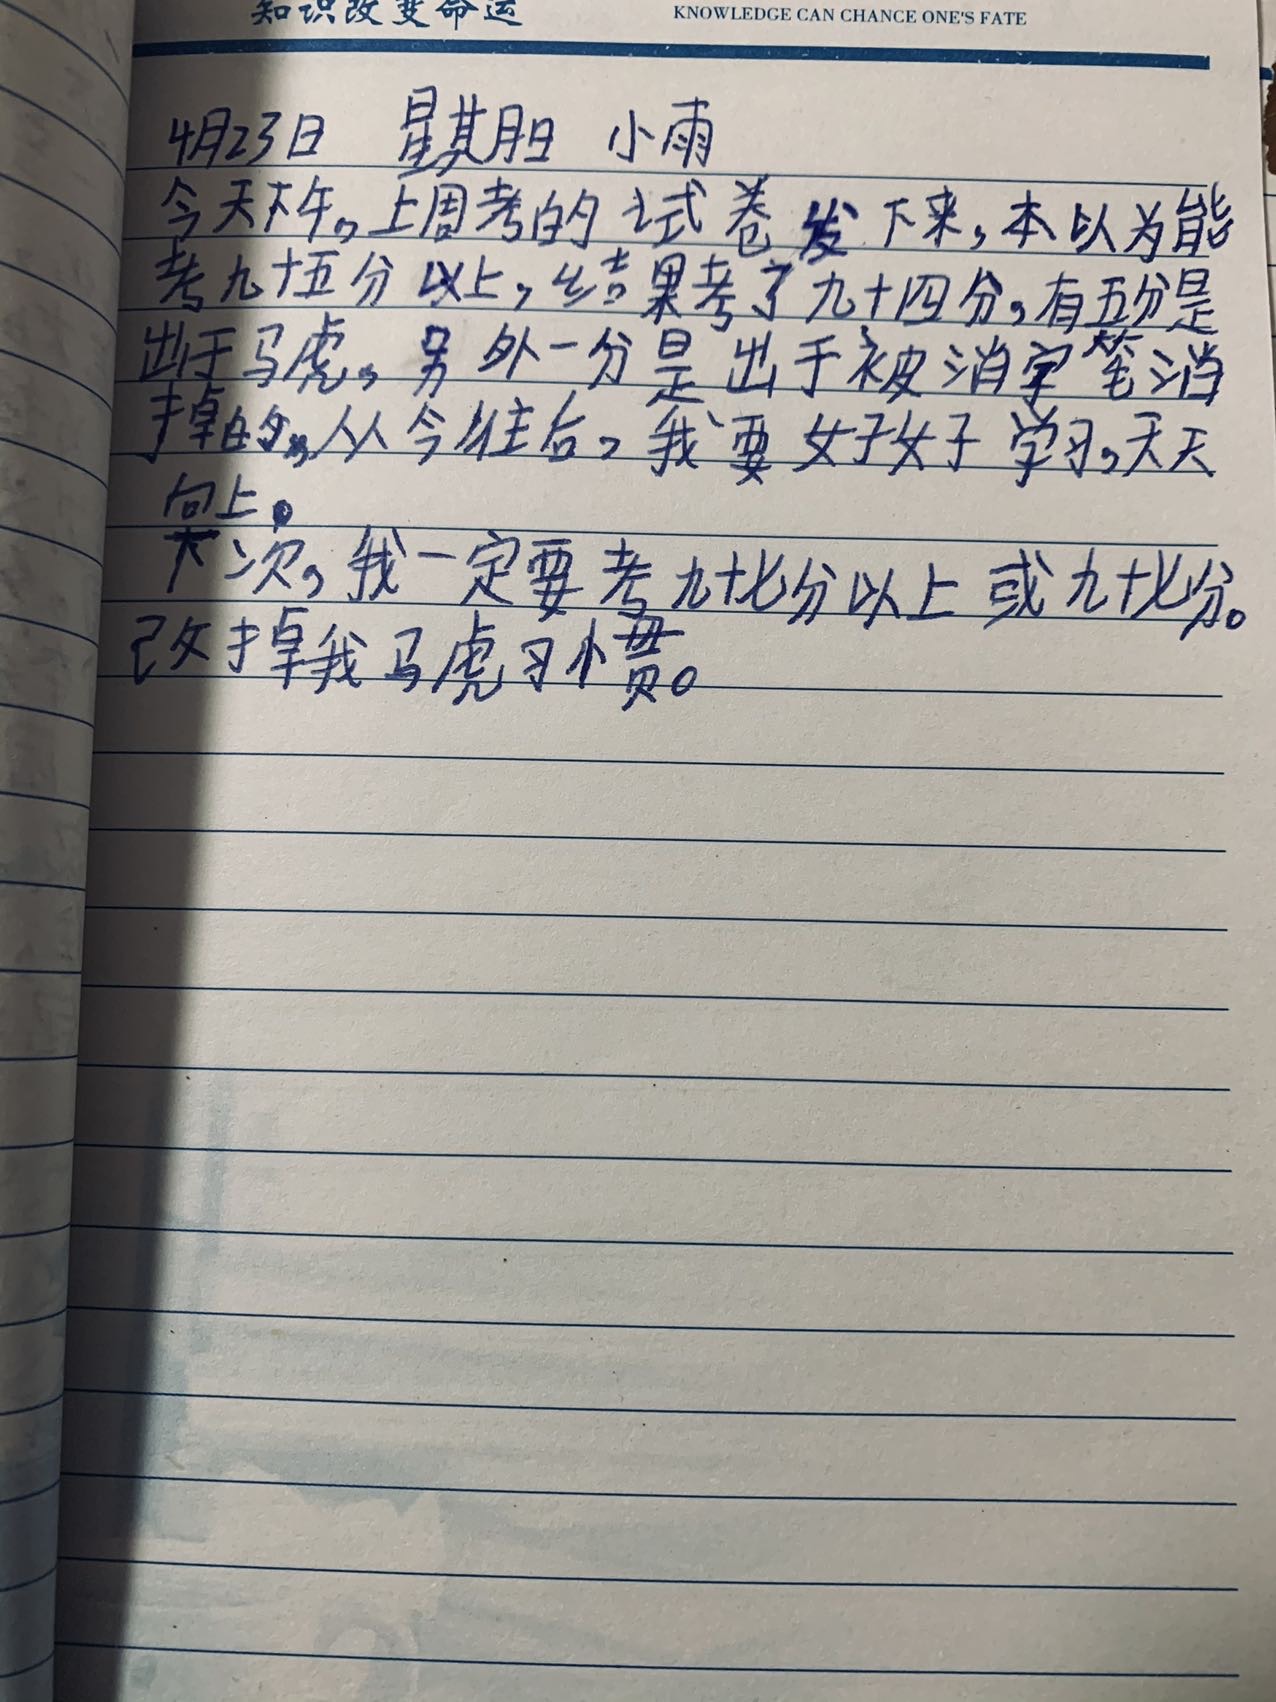 知识改变命运
KNOWLEDGE CAN CHANCE ONE'S FATE
4月23日 星期日 小雨
今天下午，上周考的试卷发下来，本以为能
考九十五分以上，结果考了九十四分，有五分是
出于马虎，另外一分是出于被消字笔消
掉的，从今往后，我要好好学习，天天
向上。
下次，我一定要考九十七分以上或九十七分。
改掉我马虎习惯。